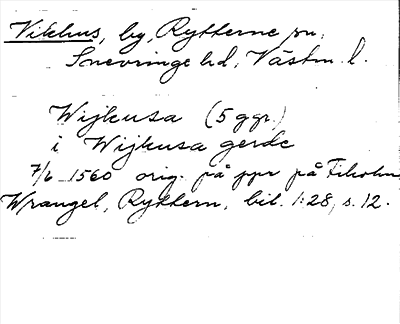 Vikhus, by, Rytterne sn,
Snevringe hd, Västm. l.
Wijkusa (5 ggr.)
i Wijkusa gerde
7/6 1560 orig. på ppr på Tidöholm
Wrangel, Ryttern, bil. 1:28, s. 12.